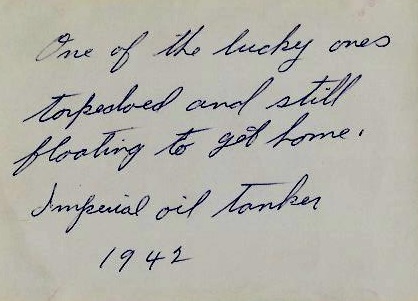 One of the lucky ones
torpedoed and still
floating to get home.
Imperial oil tanker
1942